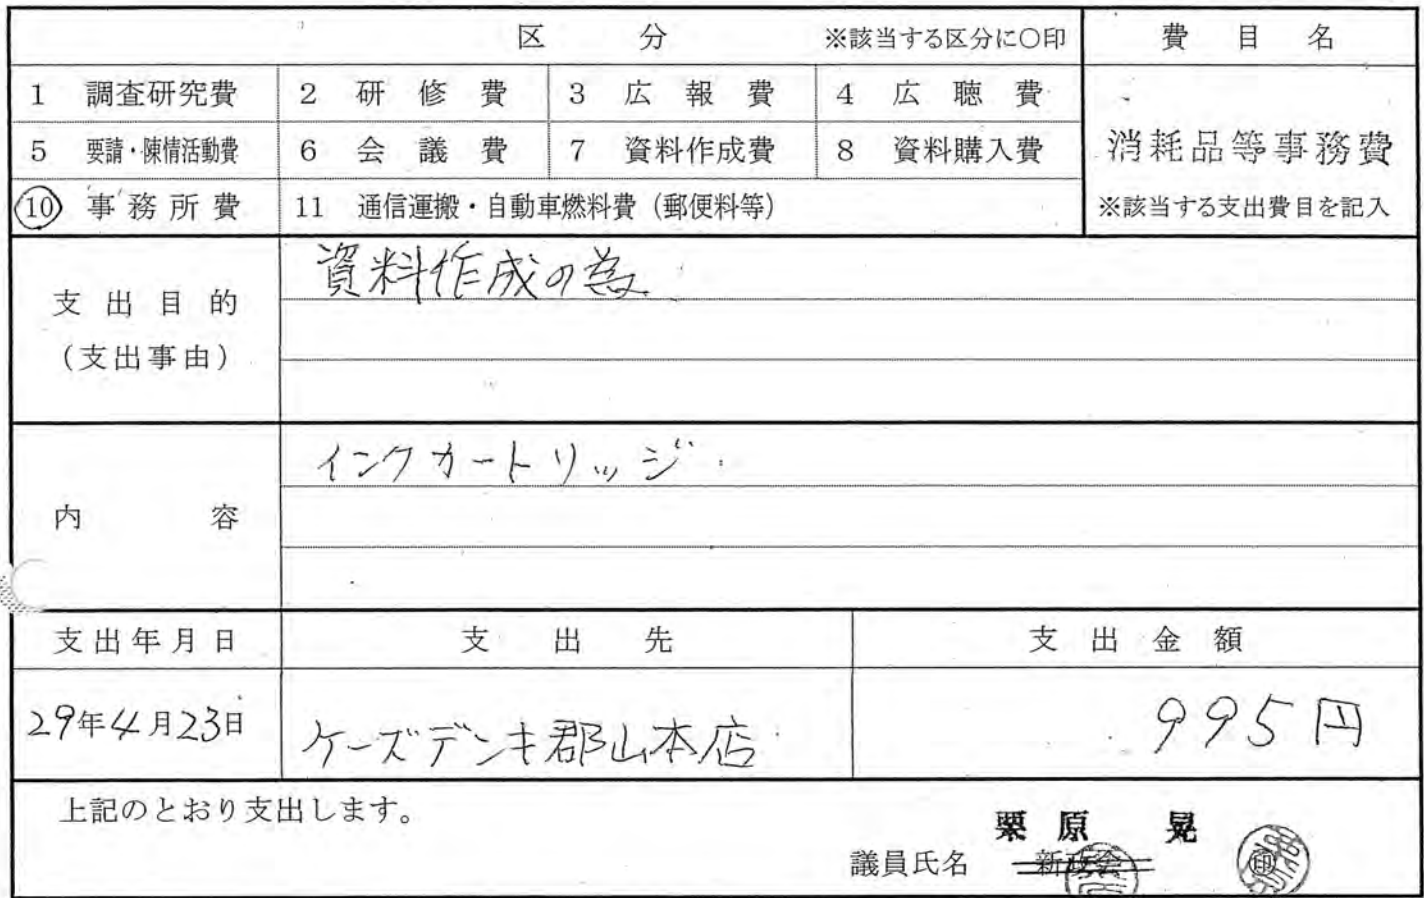 区 分 ※該当する区分に〇印 費 目 名
1 調査研究費 2 研 修 費 3 広 報 費 4 広 聴 費
5 要請・陳情活動費 6 会 議 費 7 資料作成費 8 資料購入費 消耗品等事務費
⑩ 事務所費 11 通信運搬・自動車燃料費（郵便料等） ※該当する支出費目を記入
支 出 目 的
（支出事由）
資料作成の為
内 容
インクカートリッジ
支出年月日 支 出 先 支 出 金 額
29年4月23日 ケーズデンキ郡山本店 995円
上記のとおり支出します。
栗 原 晃
議員氏名 新政会 印